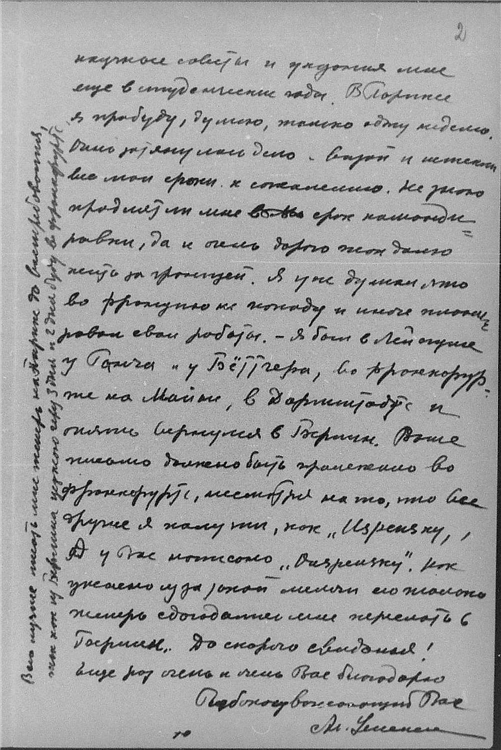 2
научные советы и указания мне
еще в студенческие годы. В Париже
я пробуду, думаю, только одну неделю.
Очень затянули дело с визой и истекли
все мои сроки к сожалению. Не знаю
продлят ли мне срок команди-
ровки, да и очень дорого жить
за границей. Я уже думал что
во Францию не попаду и иначе
свои работы. – Я был в Лейпциге
у и у Бёттгера, во Франкфур-
те на Майне, в Дармштадте и
опять вернулся в Берлин. Ваше
письмо должно быть пролежало во
Франкфурте, несмотря на то, что все
другие я получил, как
А у Вас написано Как
ужасно из за такой мелочи его только
теперь догадались мне переслать в
Берлин. До скорого свидания!
Еще раз очень и очень Вас благодарю
Глубокоуважающий Вас
Ал.
Вам лучше писать мне теперь на Париж до востребования,
так как из Берлина уезжаю через 3 дня и 2 дня буду в Франкфурте